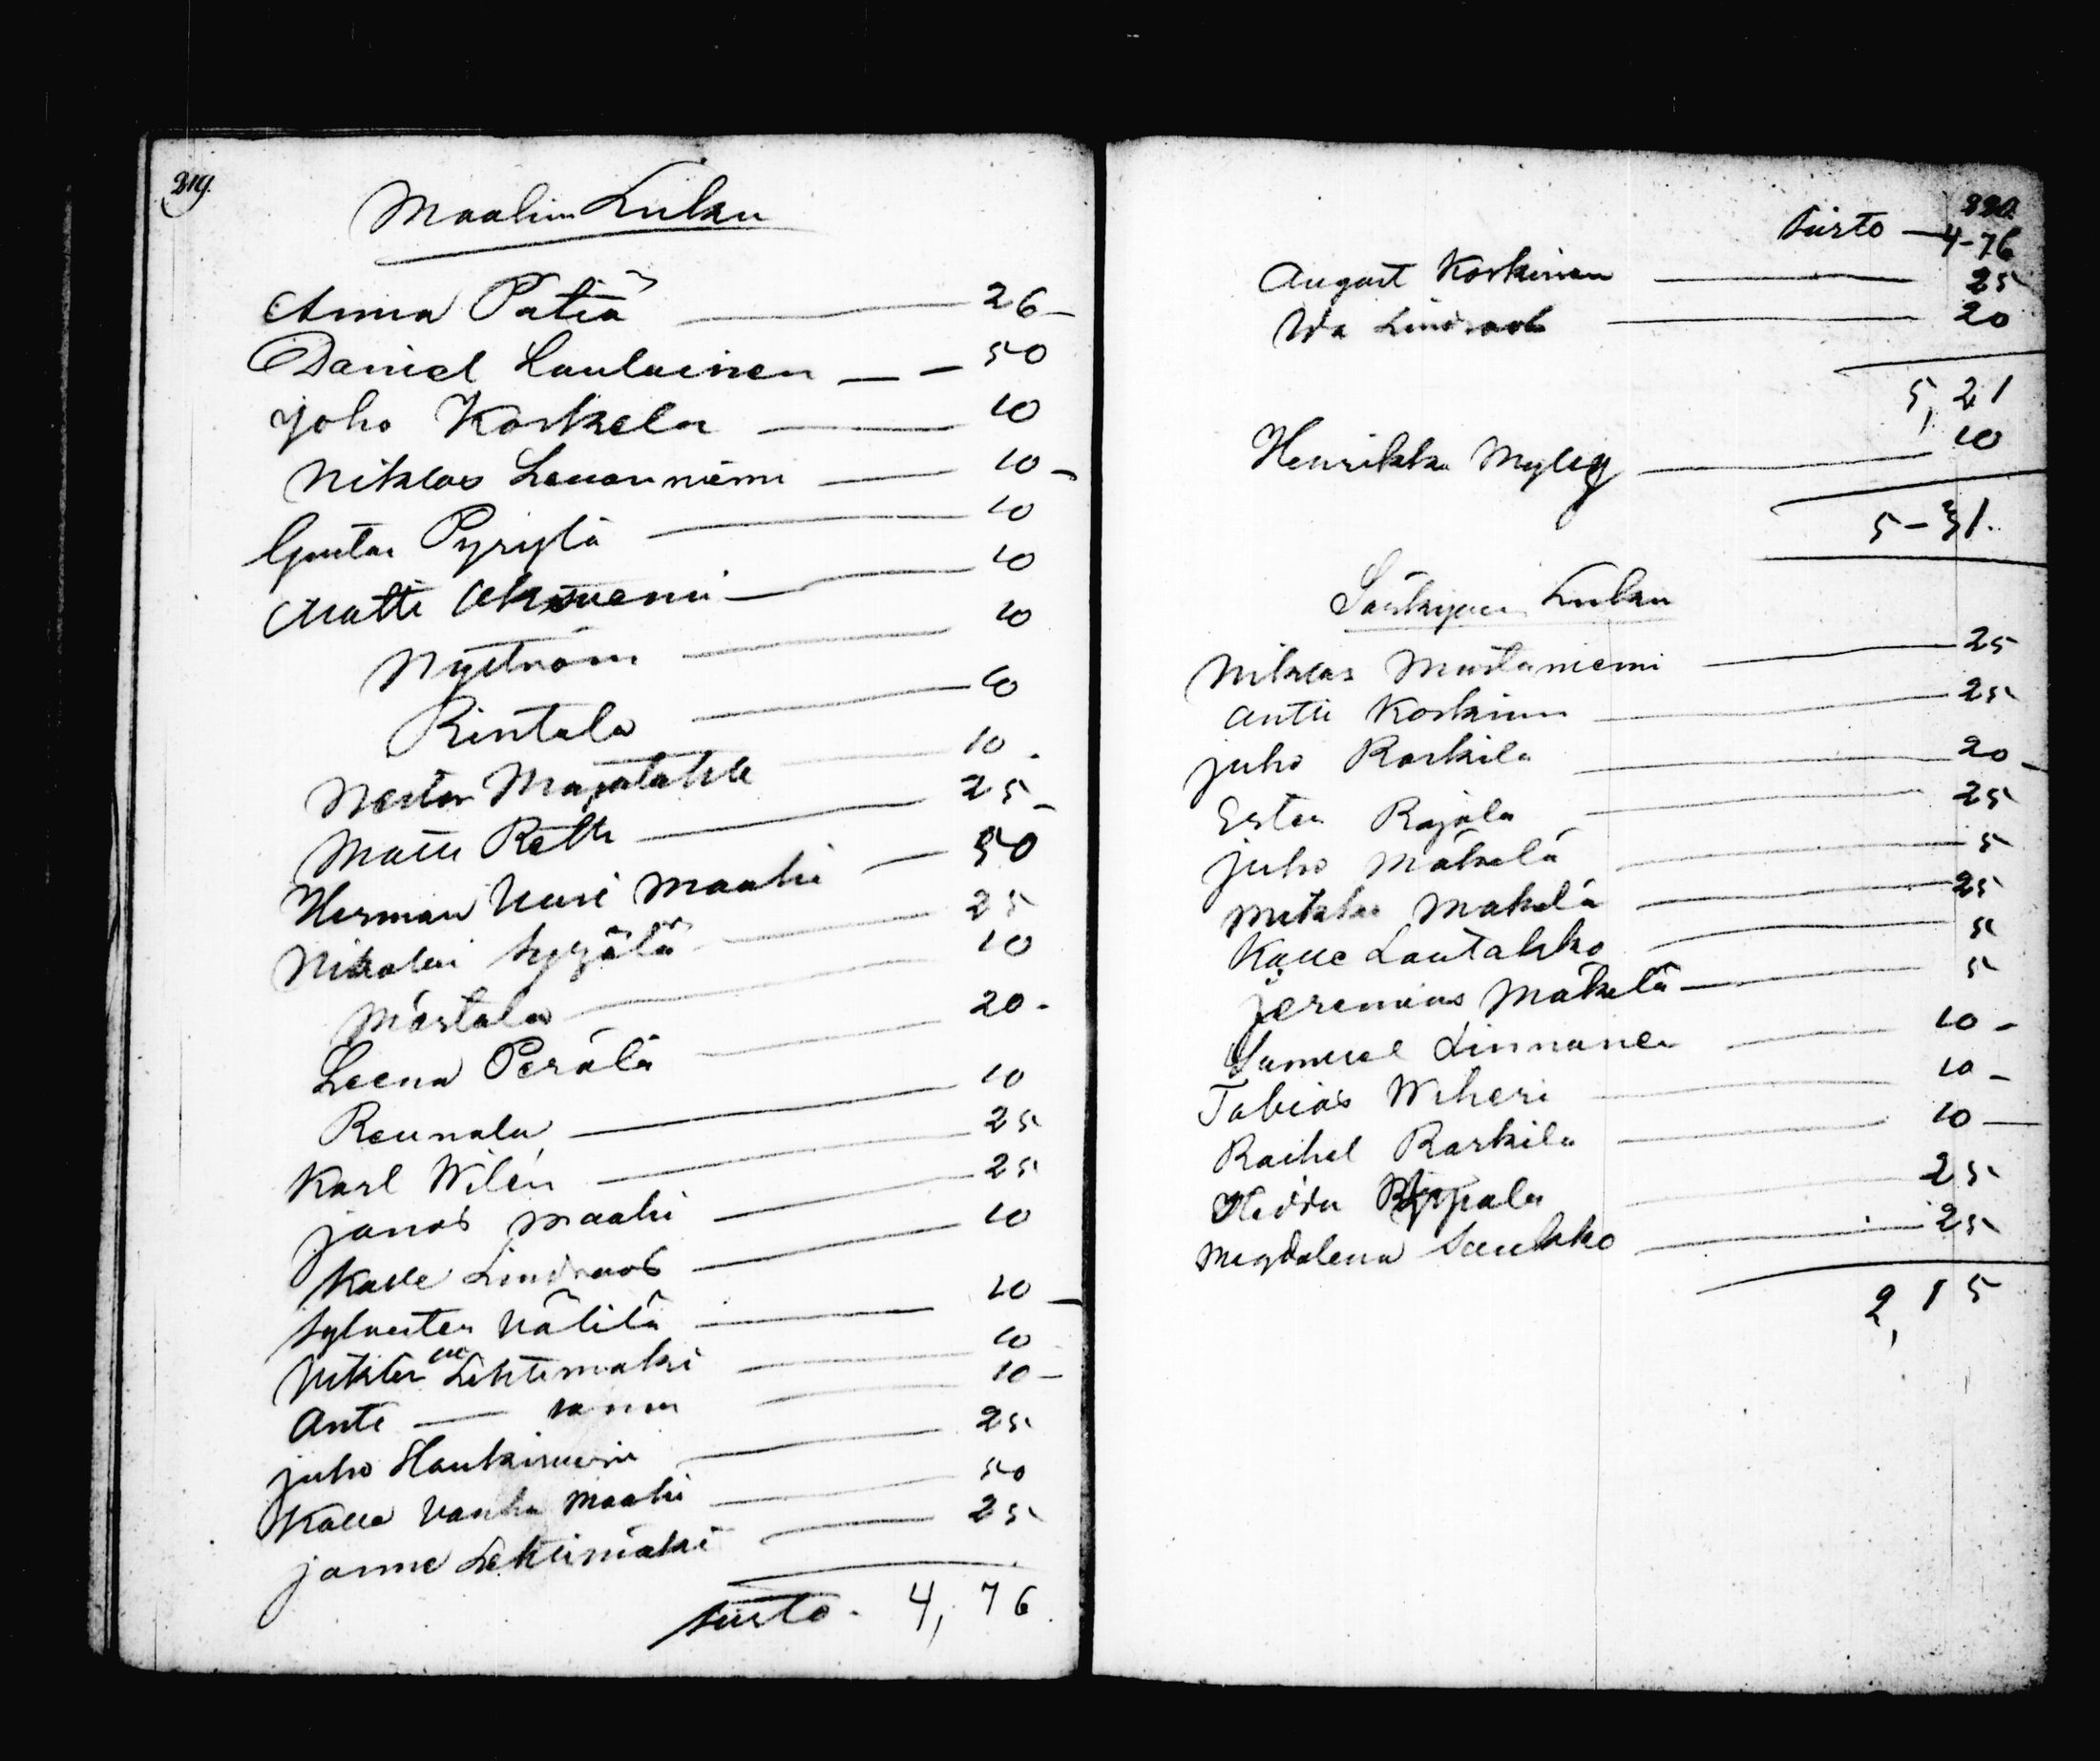 219.
Maalin Luku
Anna Patiä — 26 -
Daniel Laulainen — — 50
Joho Koskela — 10
Niklas Lauanniemi — 10 -
Gustav Pyrylä — 10
Matti — 10
Nyström — 10
Rintala — 10
Nestor Majalahti — 10 .
Matti Retti — 25 -
Herman Uusi Maahi — 50
Nikolai Syrjälä — 25
Mästala — 10
Leena Perälä — 20 -
Reunala — 10
Karl Wilén — 25
Janos Maahi — 25
Kalle Lindroos — 10
Sylvester Välilä — 10 -
Vihtori Lehtimäki — 10
Anti — sama — 10 -
Juho Haukiniemi — 25
Kalle Vanha Maahi — 50
Janne Lehtimäki — 25
Siirto . 4,76.
220.
Siirto — 4-76
August Koskinen — 25
Ida Lindroos — 20
5,21
Henrikka — 10
5-31.
Särkijaen Luku
Niklas Mustaniemi — 25
Antti Koskinen — 25
Juho Raskila — 20 -
Ester Rajala — 25
Juho Mäkelä — 5
Mäkelä — 25
Kalle Lautakko — 5
Jeremias Mäkelä — 5
Samuel Linnanen — 10 -
Tobias Wiheri — 10 -
Rachel Raskila — 10 —
Hedda — 25
Magdalena Saukko — 25
2,15